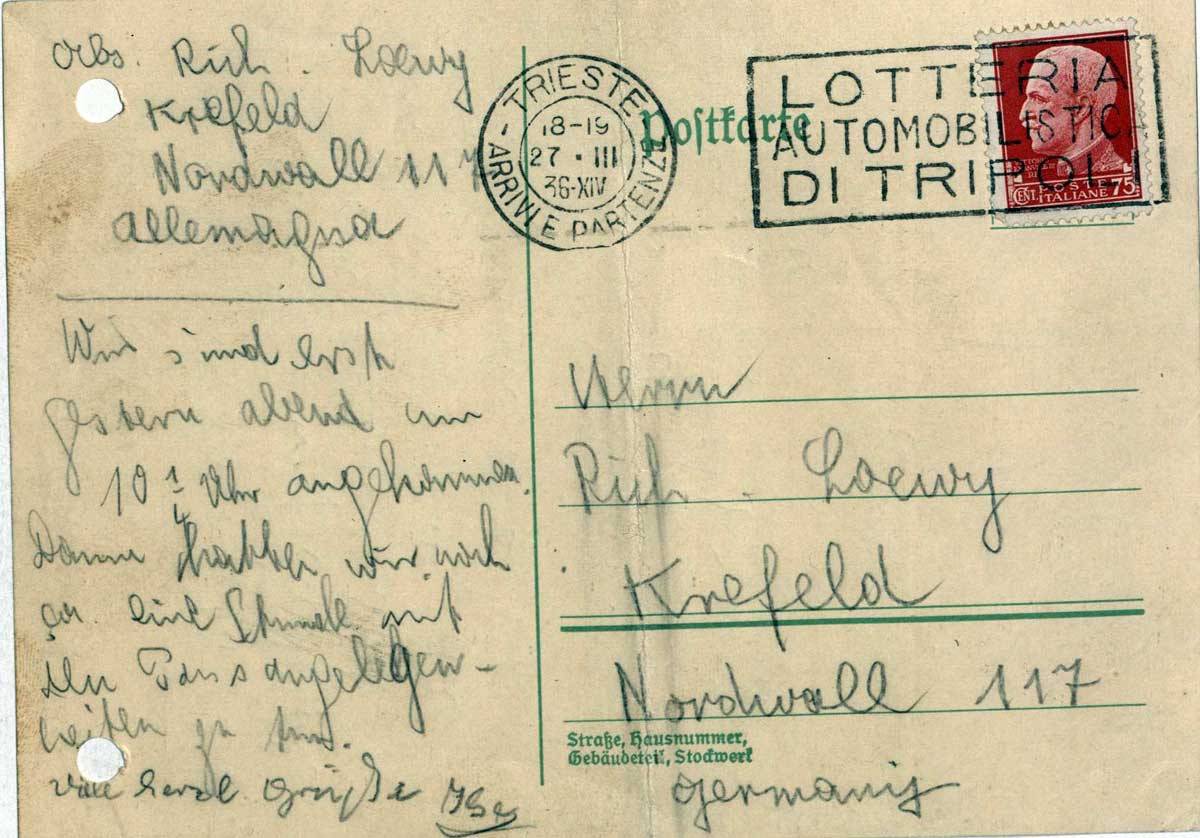 Abs. Rich. Loewy
Krefeld
Nordwall 117
Allemagna
Wir sind erst
gestern abend um
10 1/4 Uhr angekommen.
Dann hatten wir noch
ca. eine Stunde mit
den Passangelegen-
heiten zu tun.
Viele herzl. Grüße Ilse
TRIESTE
ARRIVI E PARTENZE
18-19
27 · III
36-XIV
Postkarte
LOTTERIA
AUTOMOBILISTICA
DI TRIPOLI
POSTE
CENT. ITALIANE 75
Herrn
Rich. Loewy
Krefeld
Nordwall 117
Straße, Hausnummer,
Gebäudeteil, Stockwerk
Germania